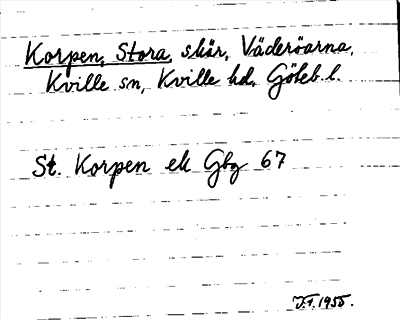 Korpen, Stora, skär, Väderöarna,
Kville sn, Kville hd, Göteb. l.
St. Korpen ek Gbg 67
J.I. 1955.